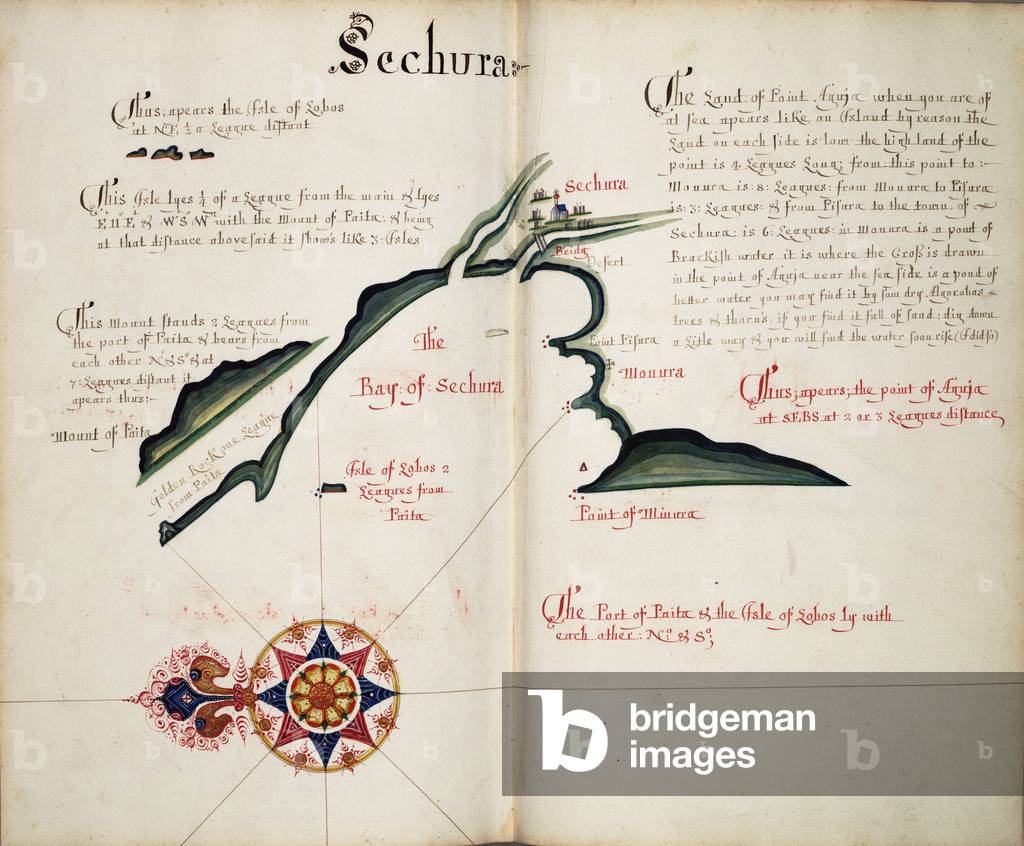 Sechura
Thus; apears the Isle of Lobos
at NE, ½ a League distant
This Isle lyes ¼ of a League from the main & lyes
with the Mount of Paita: & being
at that distance abovesaid it shows like 3: Isles
This Mount stands 2 Leagues from
the port of Paita & bears from
each other No & So & at
7: Leagues distant it
apears thus:~
Mount of Paita
Golden Rock one League
from Paita
Sechura
Bridg
Desert
The
Bay: of: Sechura
Point Pisura
Monura
Isle of Lobos 2
Leagues from
Paita
Point of Minura
The Land of Point Aguja when you are of
at sea apears like an Island by reason the
Land on each side is low the high land of the
point is 4 Leagues Long; from this point to :~
Monura is: 8: Leagues: from Monura to Pisura
is: 3: Leagues: & from Pisura to the town of
Sechura is 6: Leagues: in Monura is a point of
Brackish water it is where the Cross is drawn
in the point of Aguja near the sea side is a pond of
better water you may find it by som dry Algorobas
trees & thorns: if you find it full of sand; dig down
a litle way & you will find the water soon rise (I did so)
Thus; apears; the point of Aguja
at SEBS at 2 or 3 Leagues distance
The Port of Paita & the Isle of Lobos ly with
each other: No & So;
bridgeman
images